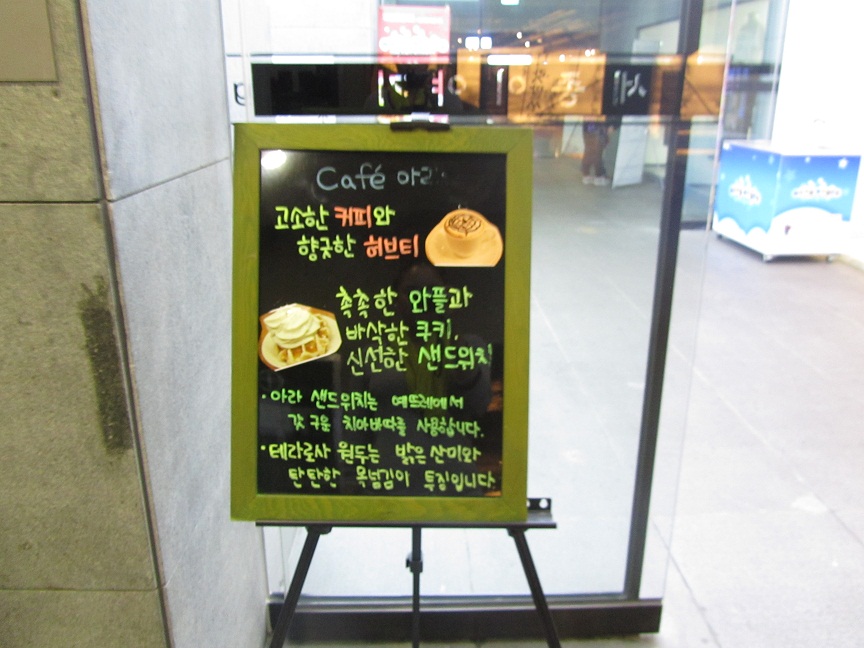 Café 아라
고소한 커피와
향긋한 허브티
촉촉한 와플과
바삭한 쿠키,
신선한 샌드위치
· 아라 샌드위치는 예쁘레에서
갓 구운 치아바따를 사용합니다.
· 테라로사 원두는 밝은 산미와
탄탄한 목넘김이 특징입니다.